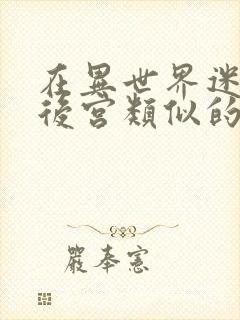 在異世界迷
後宮類似的
嚴奉憲